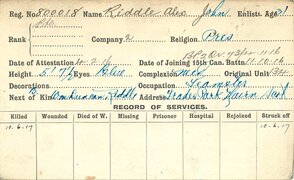 Reg. No. 800018 Name Riddle Alex John Enlist. Age 21
Rank Company 2 Religion Pres
Date of Attestation Date of Joining 15th Can. Battn 11-10-16
Height 5' 7½ Eyes Blue Complexion Med Original Unit 134
Decorations Occupation Teamster
Next of Kin Duncan Riddle Address Park Nairn
RECORD OF SERVICES.
Killed Wounded Died of W. Missing Prisoner Hospital Rejoined Struck off
10.6.17 10.6.17